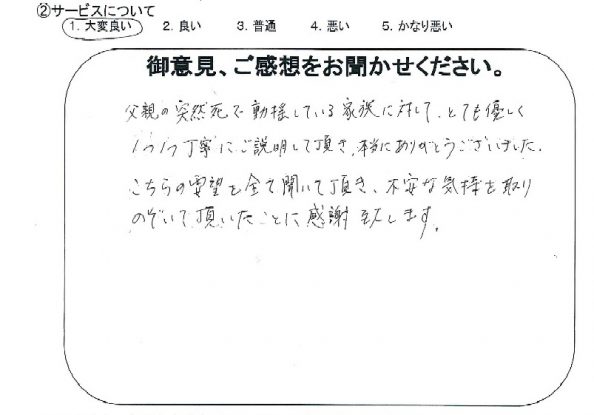 ②サービスについて
1. 大変良い 2. 良い 3. 普通 4. 悪い 5. かなり悪い
御意見、ご感想をお聞かせください。
父親の突然死で動揺している家族に対して、とても優しく
1つ1つ丁寧にご説明して頂き、本当にありがとうございました。
こちらの要望を全て聞いて頂き、不安な気持を取り
のぞいて頂いたことに感謝致します。